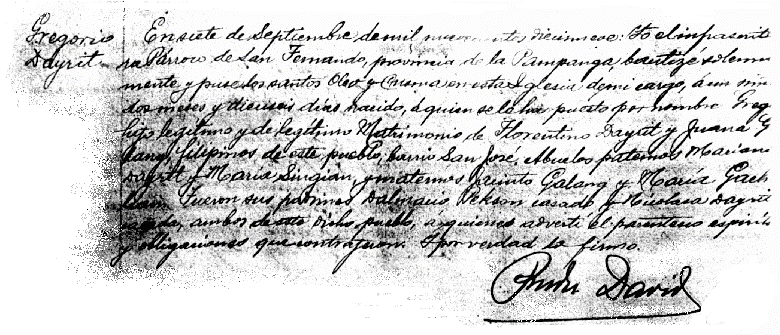 Gregorio
Dayrit.
En siete de Septiembre de mil novecientos diecinueve: Yo el infrascrito
Párroco de San Fernando, provincia de la Pampanga, bauticé solemne
mente y puse los santos Oleo y Crisma en esta Iglesia de mi cargo, á un niño
dos meses y dieciseis dias nacido, á quien se le ha puesto por nombre Greg
hijo legítimo y de legítimo Matrimonio de Florentino Dayrit y Juana G
lang, filipinos de este pueblo, barrio San Jose, Abuelos paternos Mariano
Dayrit y Maria Singian, y maternos Jacinto Galang y Maria
Fueron sus padrinos casado y Nicolasa Dayrit
casada, ambos de este dicho pueblo, á quienes advertí el parentesco espiritu
y obligaciones que contrajeron. Y por verdad lo firmo.
David